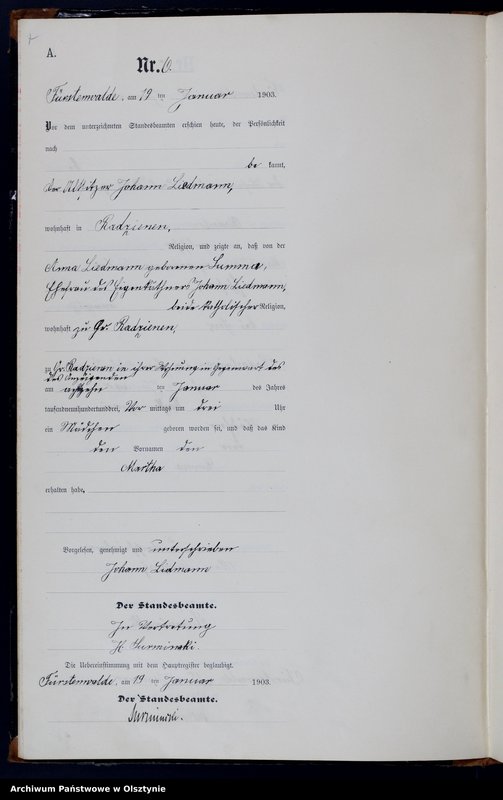 A.
Nr. 6.
Fürstenwalde, am 19 ten Januar 1903.
Vor dem unterzeichneten Standesbeamten erschien heute, der Persönlichkeit
nach
be kannt,
der Altsitzer Johann Liedmann,
wohnhaft in Radzienen,
Religion, und zeigte an, daß von der
Anna Liedmann geborenen Summa,
Ehefrau des Eigenkäthners Johann Liedmann,
beide katholischer Religion,
wohnhaft zu Gr. Radzienen,
zu Gr. Radzienen in ihrer Wohnung in Gegenwart des
des Anzeigenden
am achtzehn ten Januar des Jahres
tausendneunhundertunddrei, Vor mittags um drei Uhr
ein Mädchen geboren worden sei, und daß das Kind
den Vornamen den
Martha
erhalten habe.
Vorgelesen, genehmigt und unterschrieben
Johann Liedmann
Der Standesbeamte.
In Vertretung
Surminski.
Die Uebereinstimmung mit dem Hauptregister beglaubigt.
Fürstenwalde, am 19 ten Januar 1903.
Der Standesbeamte.
Surminski.
Archiwum Państwowe w Olsztynie